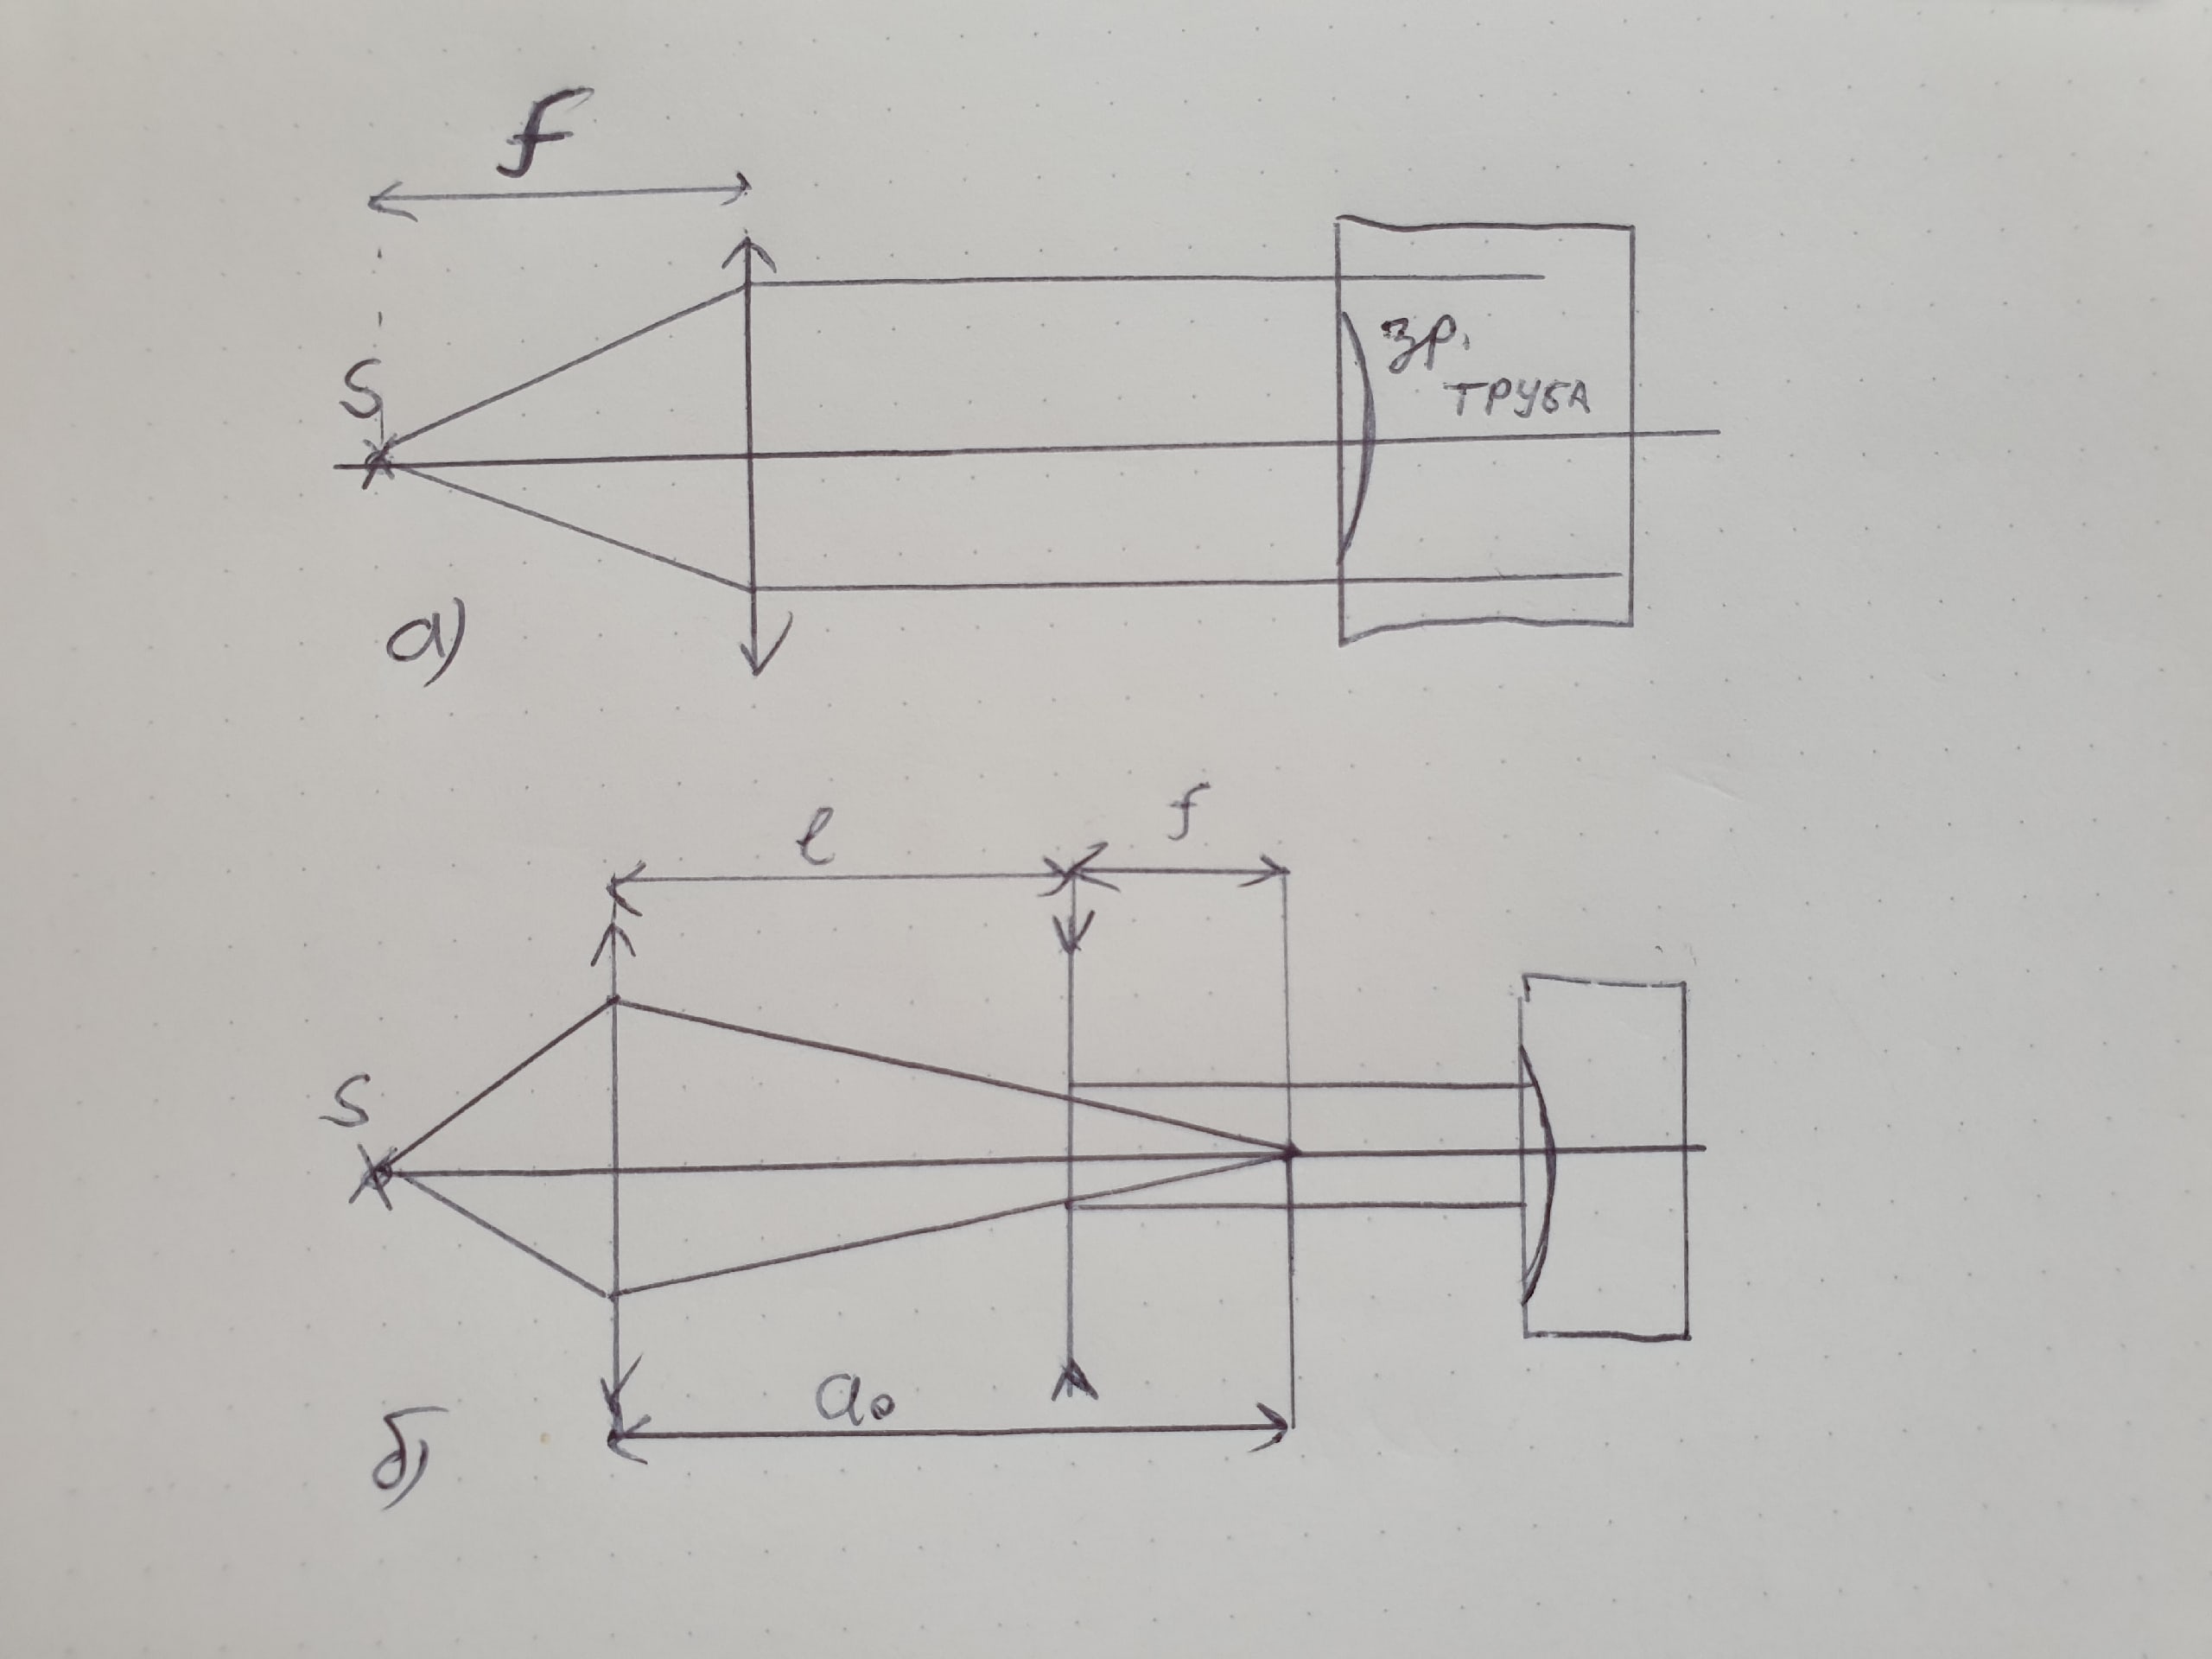 f
S
зр.
ТРУБА
а)
l
f
S
a₀
б)